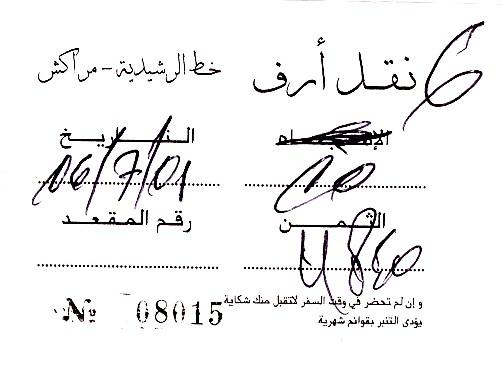 نقل أرف 6
خط الرشيدية - مراكش
التاريخ
16/7/01
20
الثمن
رقم المقعد
و إن لم تحضر في وقت السفر لاتقبل منك شكاية
يؤدى التنبر بقوائم شهرية
№ 08015